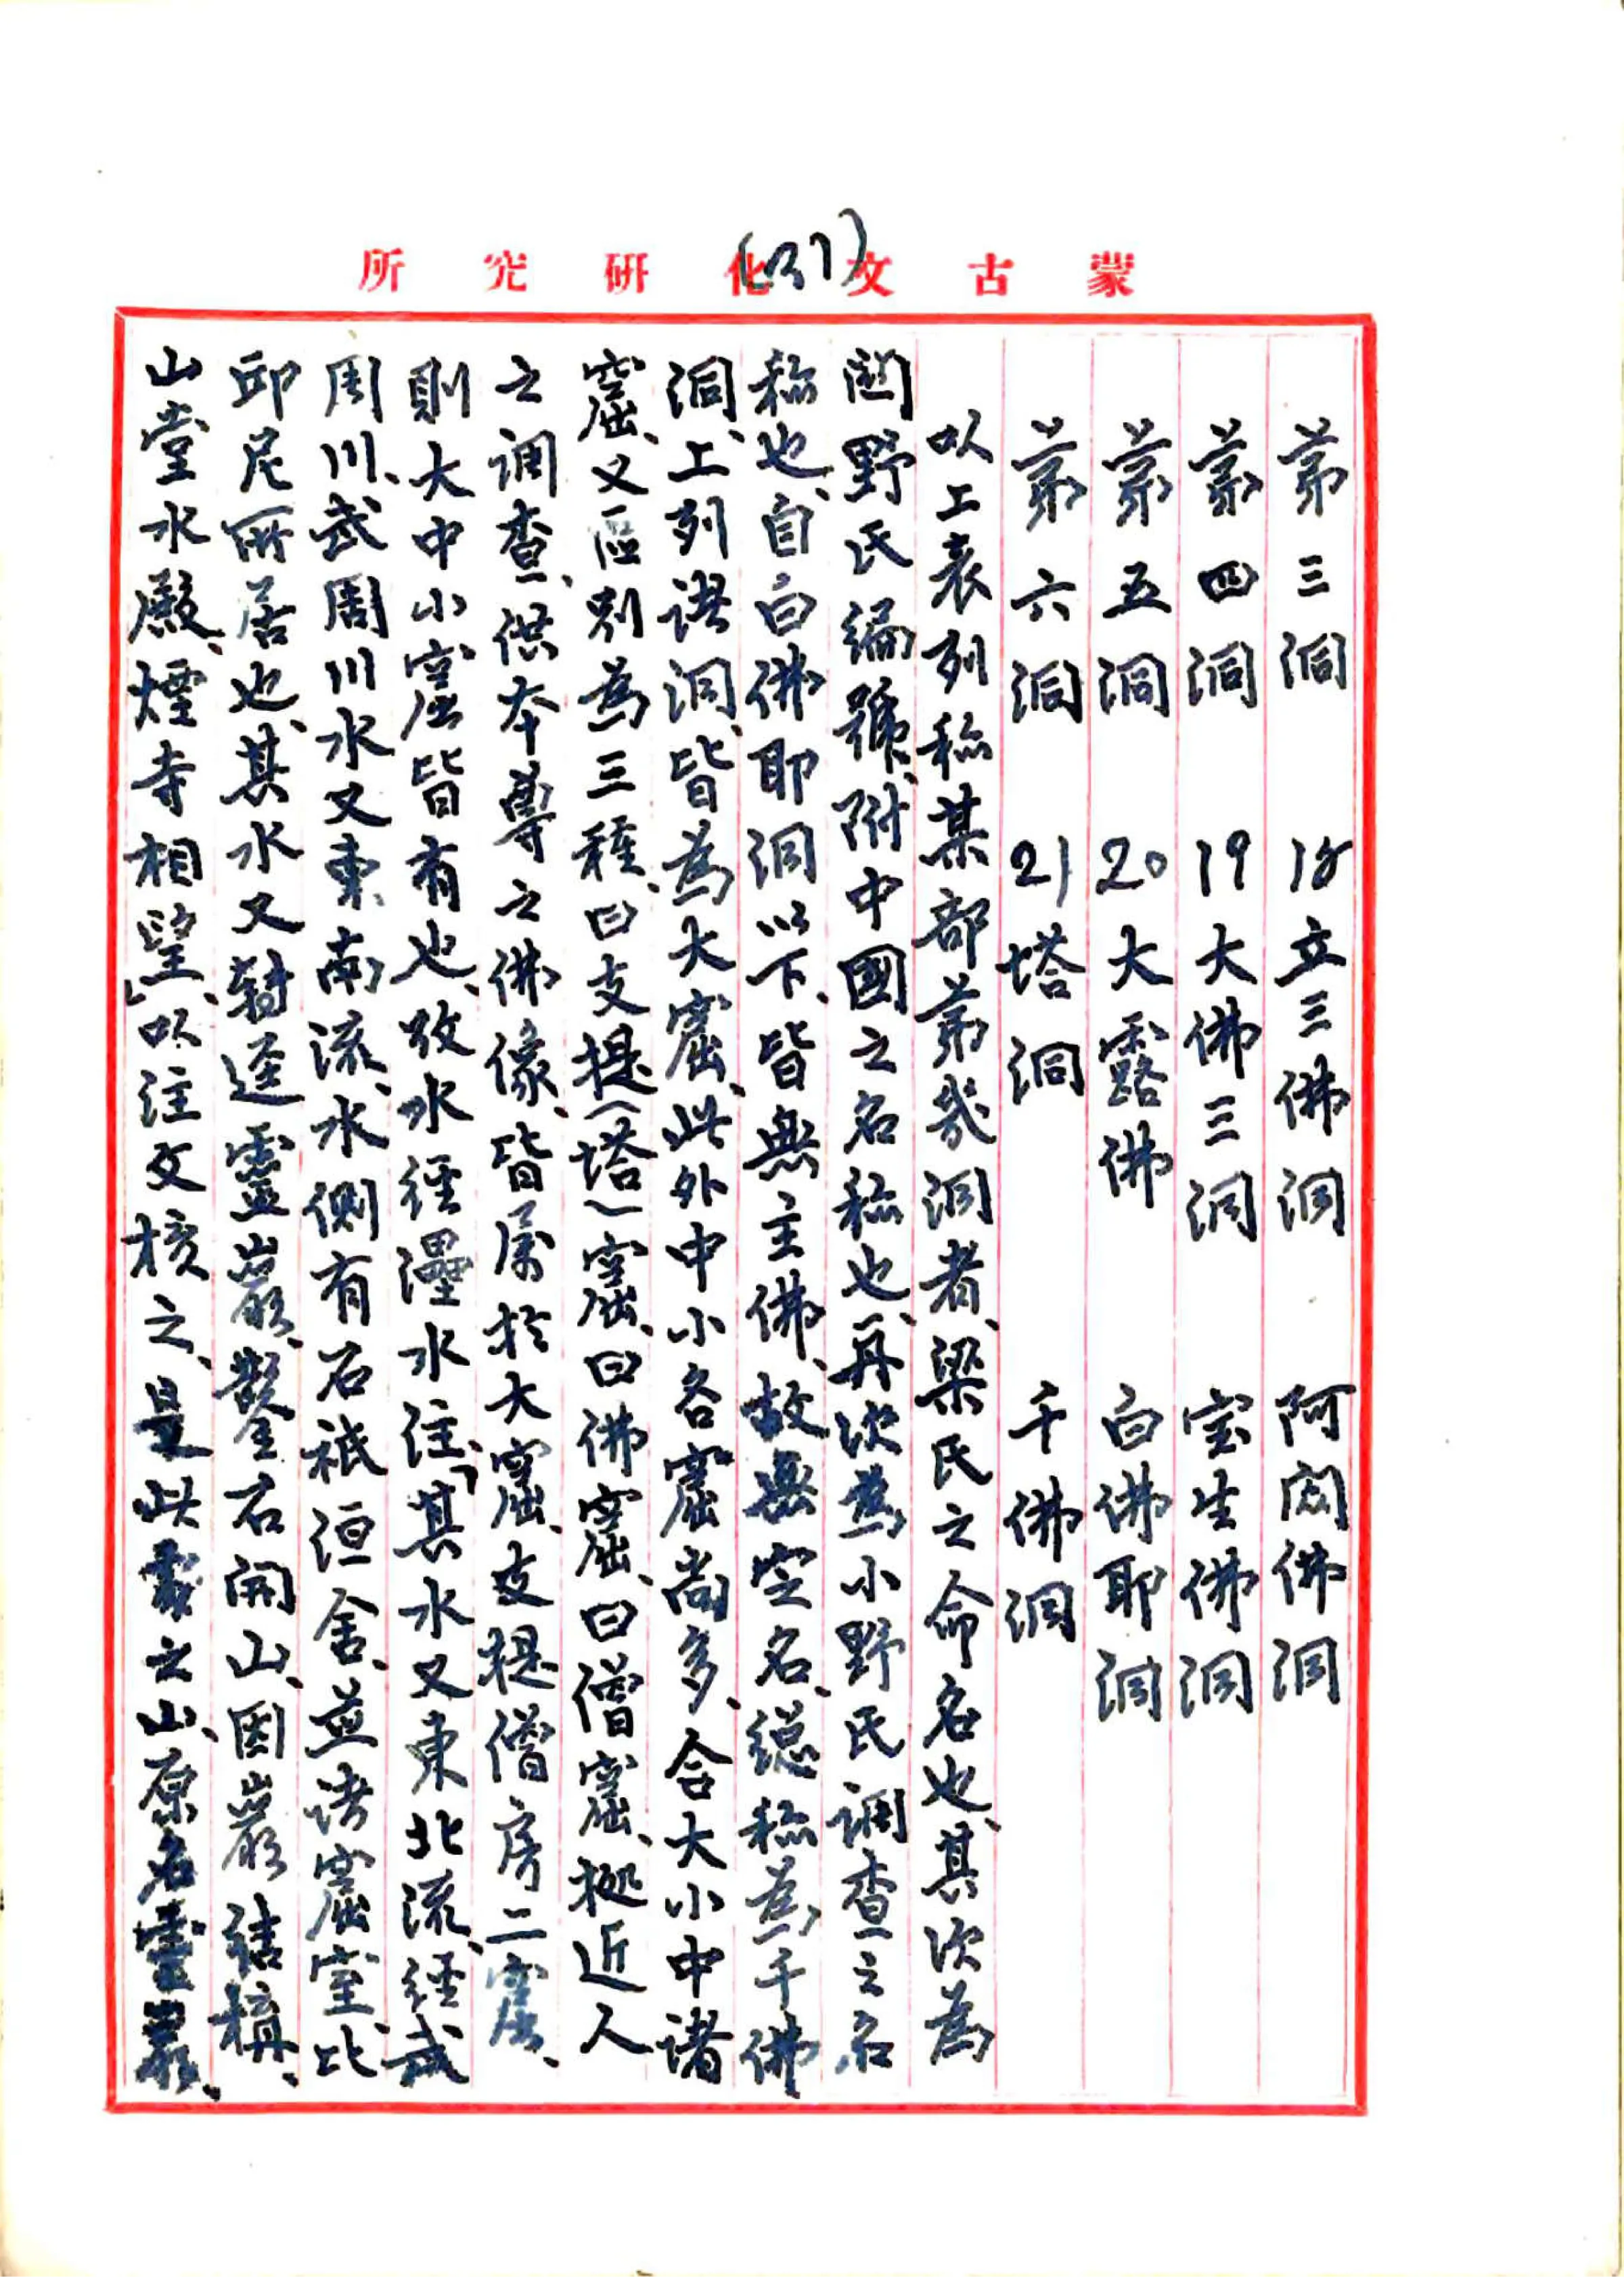 蒙古文化研究所
(37)
第三洞 18立三佛洞 阿閦佛洞
第四洞 19大佛三洞 宝生佛洞
第五洞 20大露佛 白佛耶洞
第六洞 21塔洞 千佛洞
以上表列称某部第几洞者、梁氏之命名也、其次為
関野氏編號、附中國之名称也、再次為小野氏调查之名
称也、自白佛耶洞以下、皆無主佛、故無定名、總称為千佛
洞、上列諸洞、皆為大窟、此外中小各窟尚多、合大小中诸
窟、又區别為三種、曰支提(塔)窟、曰佛窟、曰僧窟、據近人
之调查、供本尊之佛像、皆属於大窟、支提僧房二窟、
則大中小窟皆有也、攷水經㶟水注、「其水又東北流、經武
周川、武周川水又東南流、水側有石祇洹舍、並诸窟室、比
邱尼所居也、其水又轉逕靈巖、鑿石開山、因巖結構、
山堂水殿、煙寺相望」、以注文核之、是此雲之山、原名靈巖、